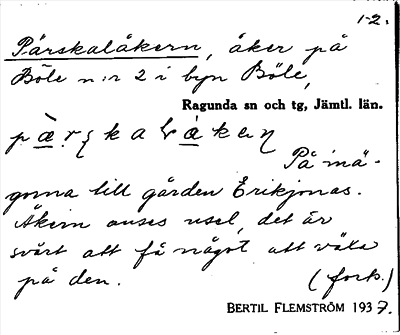 1-2.
Pärskalåkern, åker på
Böle n:r 2 i byn Böle,
Ragunda sn och tg, Jämtl. län.
På mä-
gorna till gården Erikjonas.
Åkern anses usel, det är
svårt att få något att växa
på den. (forts.)
BERTIL FLEMSTRÖM 1937.